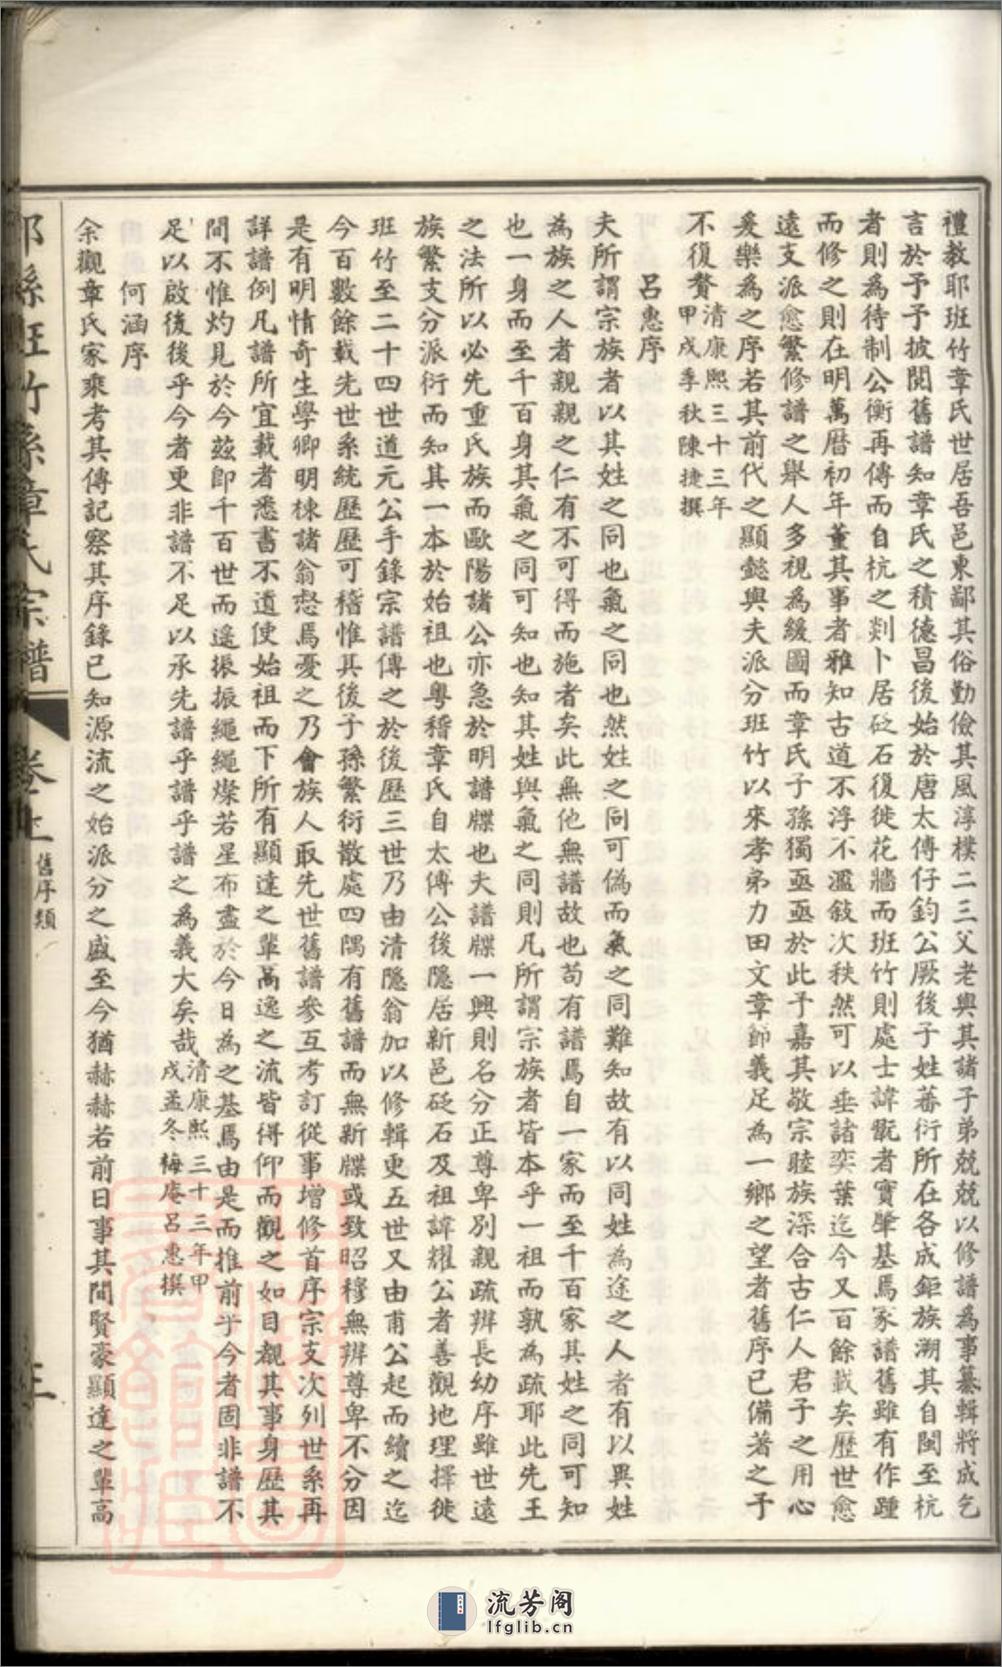 禮教耶班竹章氏世居吾邑東鄙其俗勤儉其風淳樸二三父老與其諸子弟兢兢以修譜為事纂輯將成乞
言於予予披閱舊譜知章氏之積德昌後始於唐太傅仔鈞公厥後子姓蕃衍所在各成鉅族溯其自閩至杭
者則為待制公衡再傳而自杭之剡卜居砭石復徙花牆而班竹則處士諱甑者實肇基焉家譜舊雖有作踵
而修之則在明萬曆初年董其事者雅知古道不浮不濫敍次秩然可以垂諸奕葉迄今又百餘載矣歷世愈
遠支派愈繁修譜之舉人多視為緩圖而章氏子孫獨亟亟於此予嘉其敬宗睦族深合古仁人君子之用心
爰樂為之序若其前代之顯懿與夫派分班竹以來孝弟力田文章節義足為一鄉之望者舊序已備著之予
不復贅 清康熙三十三年甲戌季秋陳捷撰
呂惠序
夫所謂宗族者以其姓之同也氣之同也然姓之同可偽而氣之同難知故有以同姓為途之人者有以異姓
為族之人者親親之仁有不可得而施者矣此無他無譜故也苟有譜焉自一家而至千百家其姓之同可知
也一身而至千百身其氣之同可知也知其姓與氣之同則凡所謂宗族者皆本乎一祖而孰為疏耶此先王
之法所以必先重氏族而歐陽諸公亦急於明譜牒也夫譜牒一興則名分正尊卑別親疏辨長幼序雖世遠
族繁支分派衍而知其一本於始祖也粵稽章氏自太傅公後隱居新邑砭石及祖諱耀公者善觀地理擇徙
班竹至二十四世道元公手錄宗譜傳之於後歷三世乃由清隱翁加以修輯更五世又由甫公起而續之迄
今百數餘載先世系統歷歷可稽惟其後子孫繁衍散處四隅有舊譜而無新牒或致昭穆無辨尊卑不分因
是有明情奇生學卿明棟諸翁惄焉憂之乃會族人取先世舊譜參互考訂從事增修首序宗支次列世系再
詳譜例凡譜所宜載者悉書不遺使始祖而下所有顯達之輩高逸之流皆得仰而觀之如目覩其事身歷其
間不惟灼見於今茲卽千百世而遙振振繩繩燦若星布盡於今日為之基焉由是而推前乎今者固非譜不
足以啟後後乎今者更非譜不足以承先譜乎譜乎譜之為義大矣哉 清康熙三十三年甲戌孟冬梅庵呂惠撰
何涵序
余觀章氏家乘考其傳記察其序錄已知源流之始派分之盛至今猶赫赫若前日事其間賢豪顯達之輩高
班竹 章氏宗譜 卷上 舊序類
流芳阁
lfglib.cn